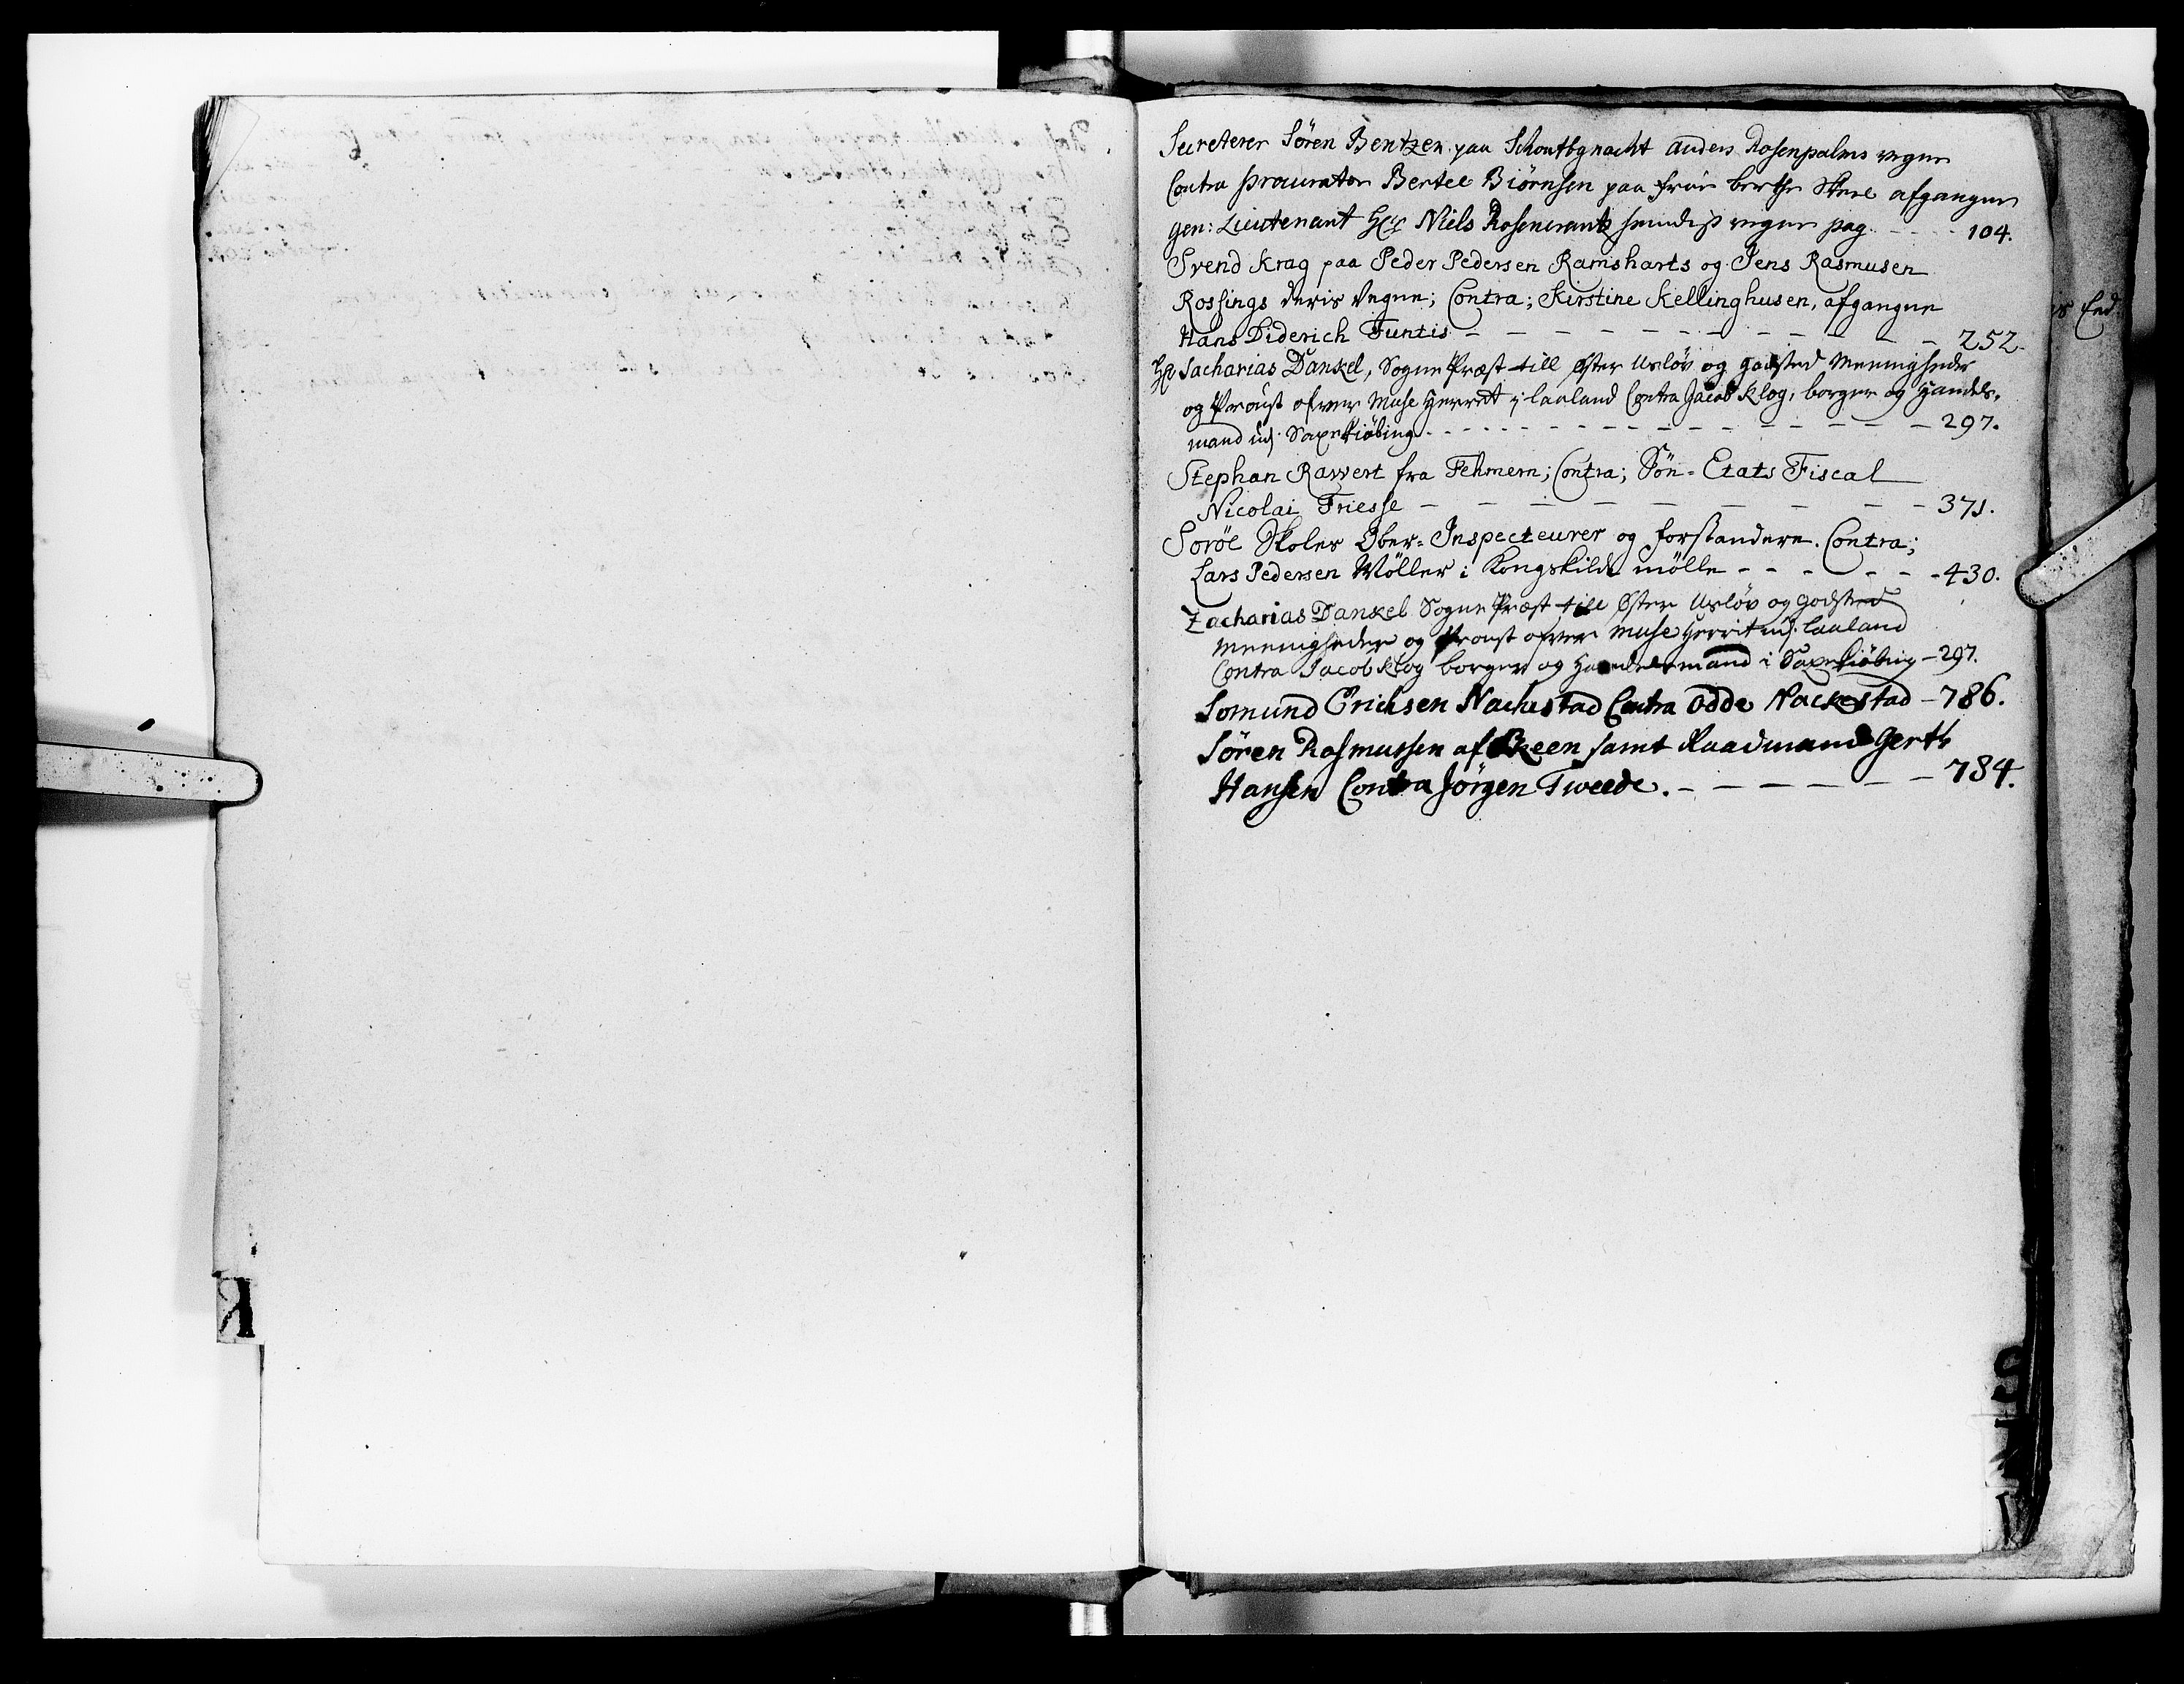 Secreterer Søren Bentzen paa Schoutbynacht Anders Rosenpalms vegne
Contra Procurator Bertel Biørnsen paa frue berthe Skeel afgangne
Gen: Lieutenant Hr Niels Rosencrantz hendis vegne pag - - - 104.
Svend Krag paa Peder Pedersen Ramsharts og Jens Rasmusen
Rossings deris Vegne; Contra; Kirstine Kellinghusen, afgangne
Hans Diderich Funtis - - - - - - - - - - 252.
Hr Sacharias Dankel, Sogne Præst till Øster Ulsløv og Godsted Meenigheder
og Proust ofver Muse Herret i Laaland Contra Jacob Klog, borger og Handels-
mand udj Saxekiøbing - - - - - - - - - - 297.
Stephan Rawert fra Fehmern; Contra; Søn-Etats Fiscal
Nicolai Friesse - - - - - - - - - 371.
Soröe Skoles Ober-Inspecteurer og forstandere. Contra;
Lars Pedersen Møller i Kongskilde mölle - - - - - - 430.
Zacharias Dankel Sogne Præst till Øster Ulsløv og Godsted
Meenigheder og Proust ofver Muse Herrit udj Laaland
Contra Jacob Klog borger og Handelsmand i Saxekiøbing - 297.
Somund Erichsen Nachestad Contra Odde Nackestad - 786.
Søren Rasmussen af Skeen samt Raadmand Gert
Hansen Contra Jörgen Tweede. - - - - - 784.
K
S